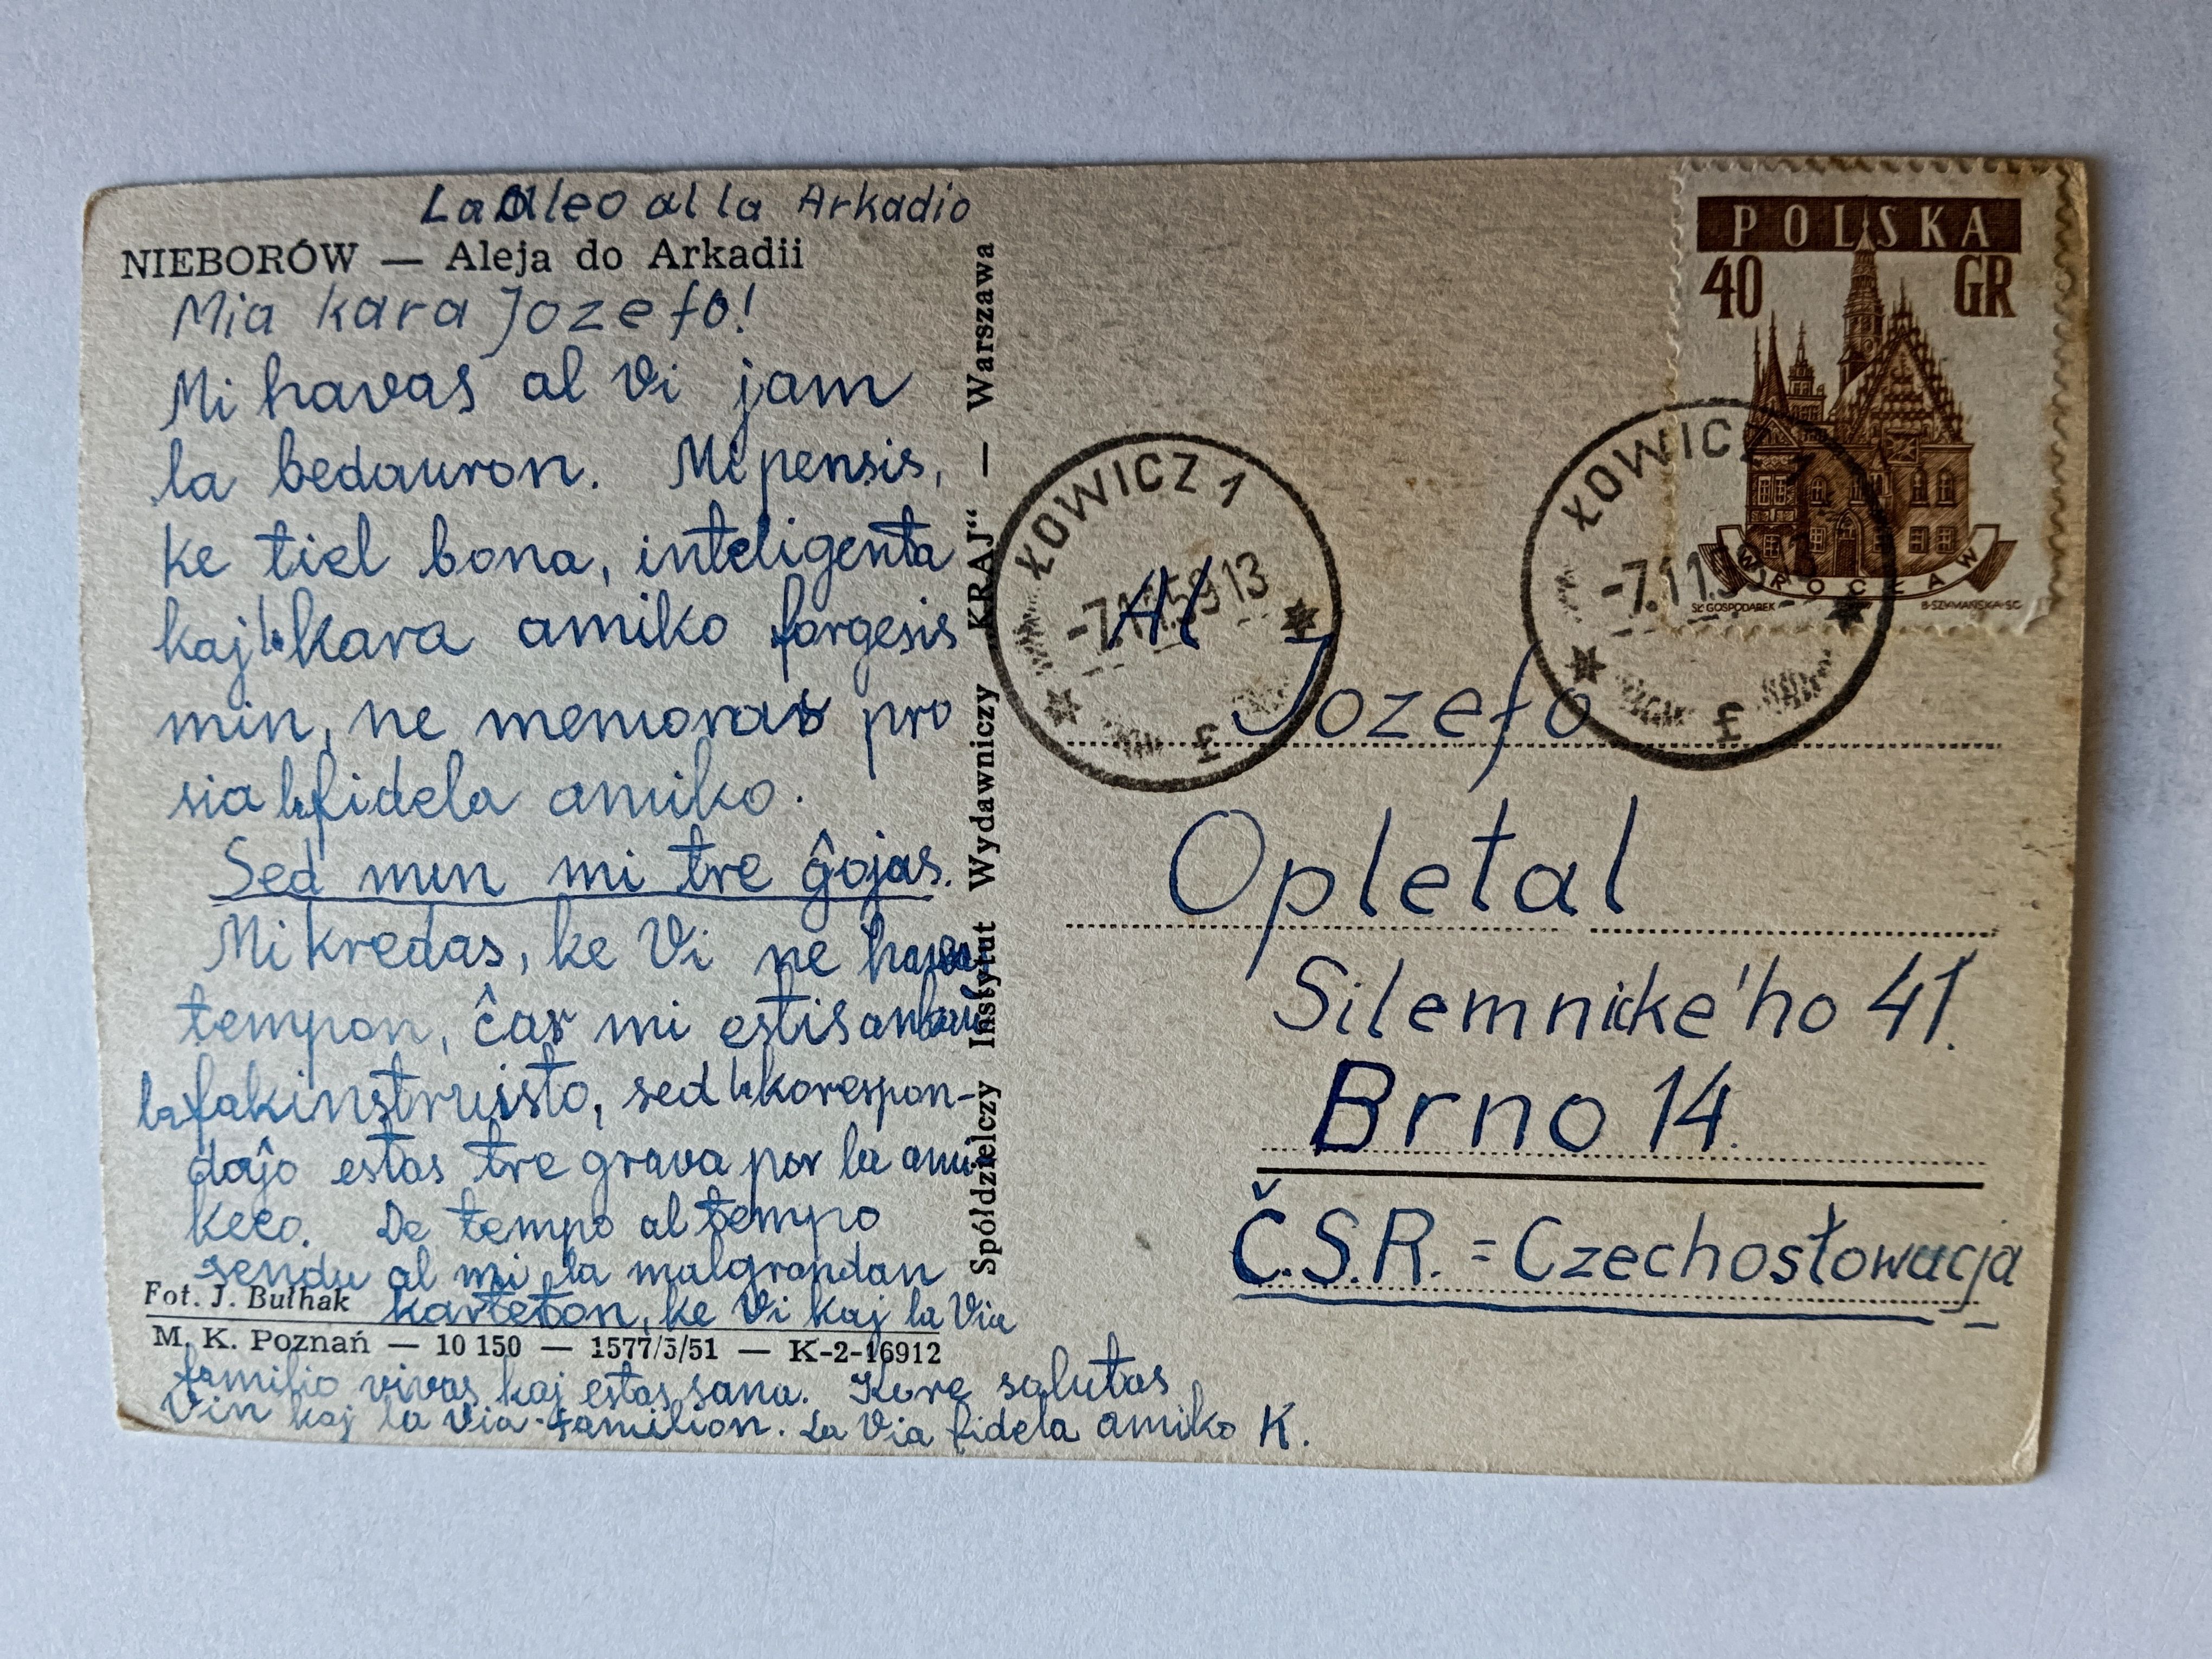 La Aleo al la Arkadio
NIEBORÓW — Aleja do Arkadii
Mia kara Jozefo!
Mi havas al Vi jam
la bedauron. Mi pensis,
ke tiel bona, inteligenta
kaj la kara amiko forgesis
min, ne memoras pro
sia la fidela amiko.
Sed nun mi tre ĝojas.
Mi kredas, ke Vi ne havas
tempon, ĉar mi estis ankaŭ
la fakinstruisto, sed la korespon-
daĵo estas tre grava por la ami-
keco. De tempo al tempo
sendu al mi la malgrandan
Fot. J. Bułhak
karteton, ke Vi kaj la Via
M. K. Poznań — 10 150 — 1577/5/51 — K-2-16912
familio vivas kaj estas sana. Kore salutas
Vin kaj la Via familion. La Via fidela amiko K.
Spółdzielczy Instytut Wydawniczy KRAJ“ — Warszawa
POLSKA
40 GR
WROCŁAW
SŁ GOSPODAREK B·SZYMAŃSKA·SC
ŁOWICZ 1
-7.11.59 13
ŁOWICZ 1
-7.11.59
Al
Jozefo
Opletal
Silemnicke'ho 41.
Brno 14.
Č.S.R. = Czechosłowacja